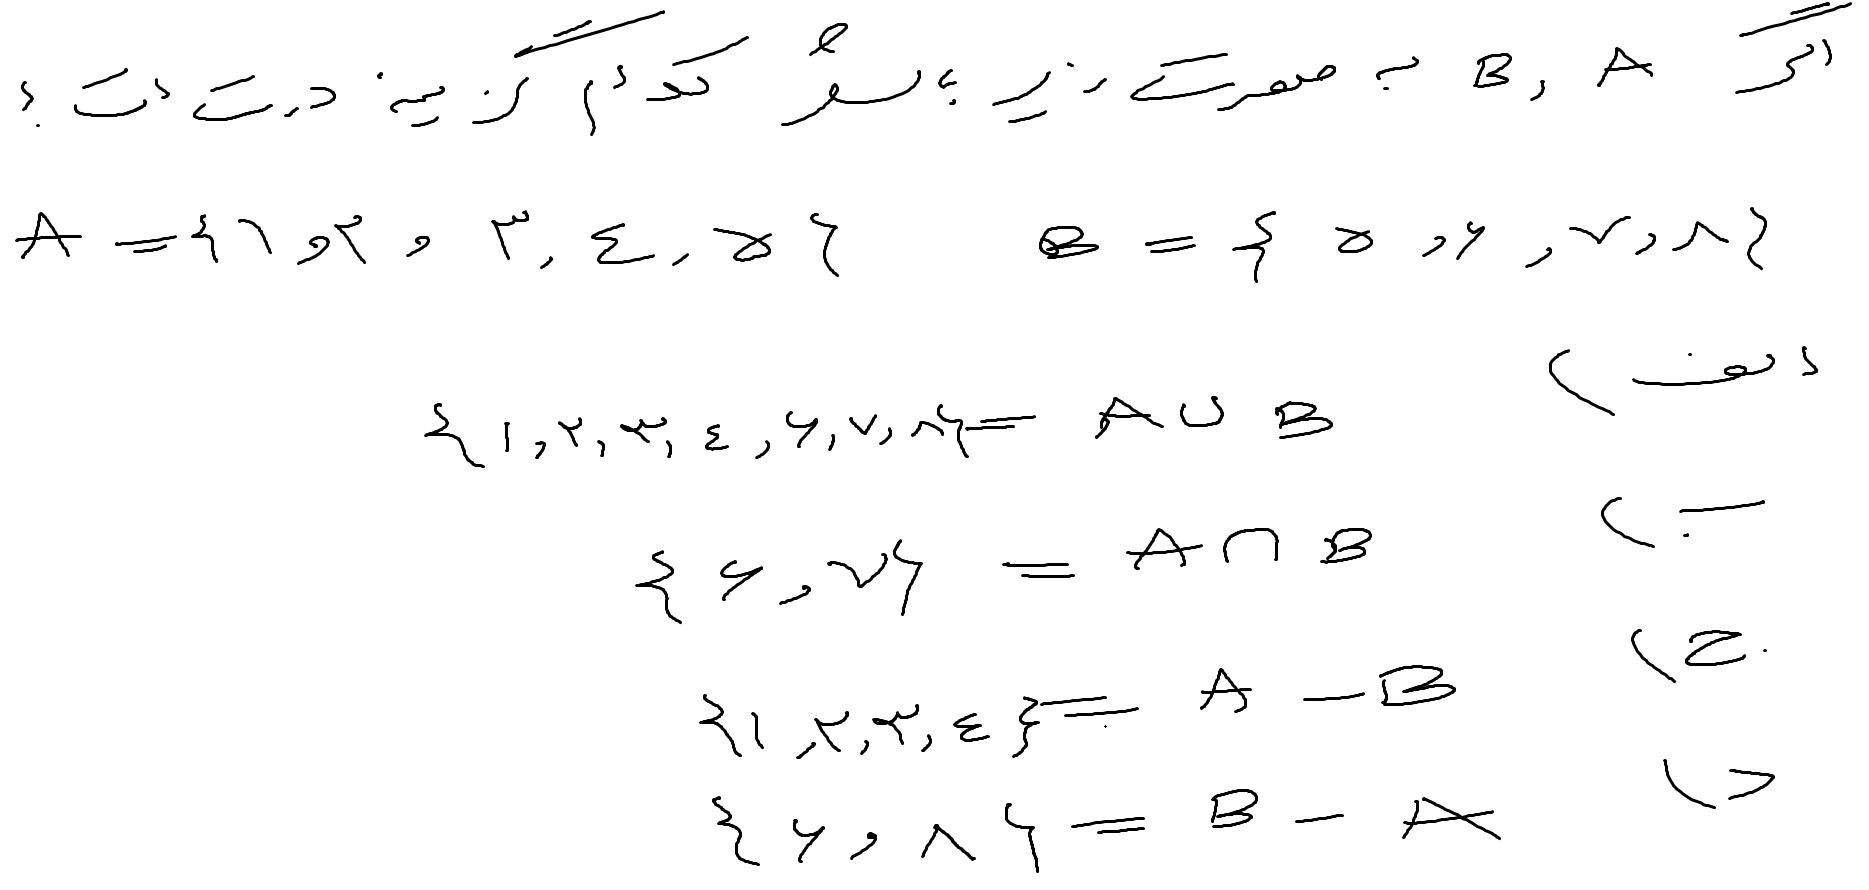 اگر A و B به صورت زیر باشد کدام گزینه درست است ؟
A = {۱, ۲, ۳, ٤, ۵} B = {۵, ۶, ۷, ۸}
الف)
{۱, ۲, ۳, ٤, ۶, ۷, ۸} = A ∪ B
ب)
{۶, ۷} = A ∩ B
ج)
{۱, ۲, ۳, ٤} = A - B
د)
{۶, ۸} = B - A